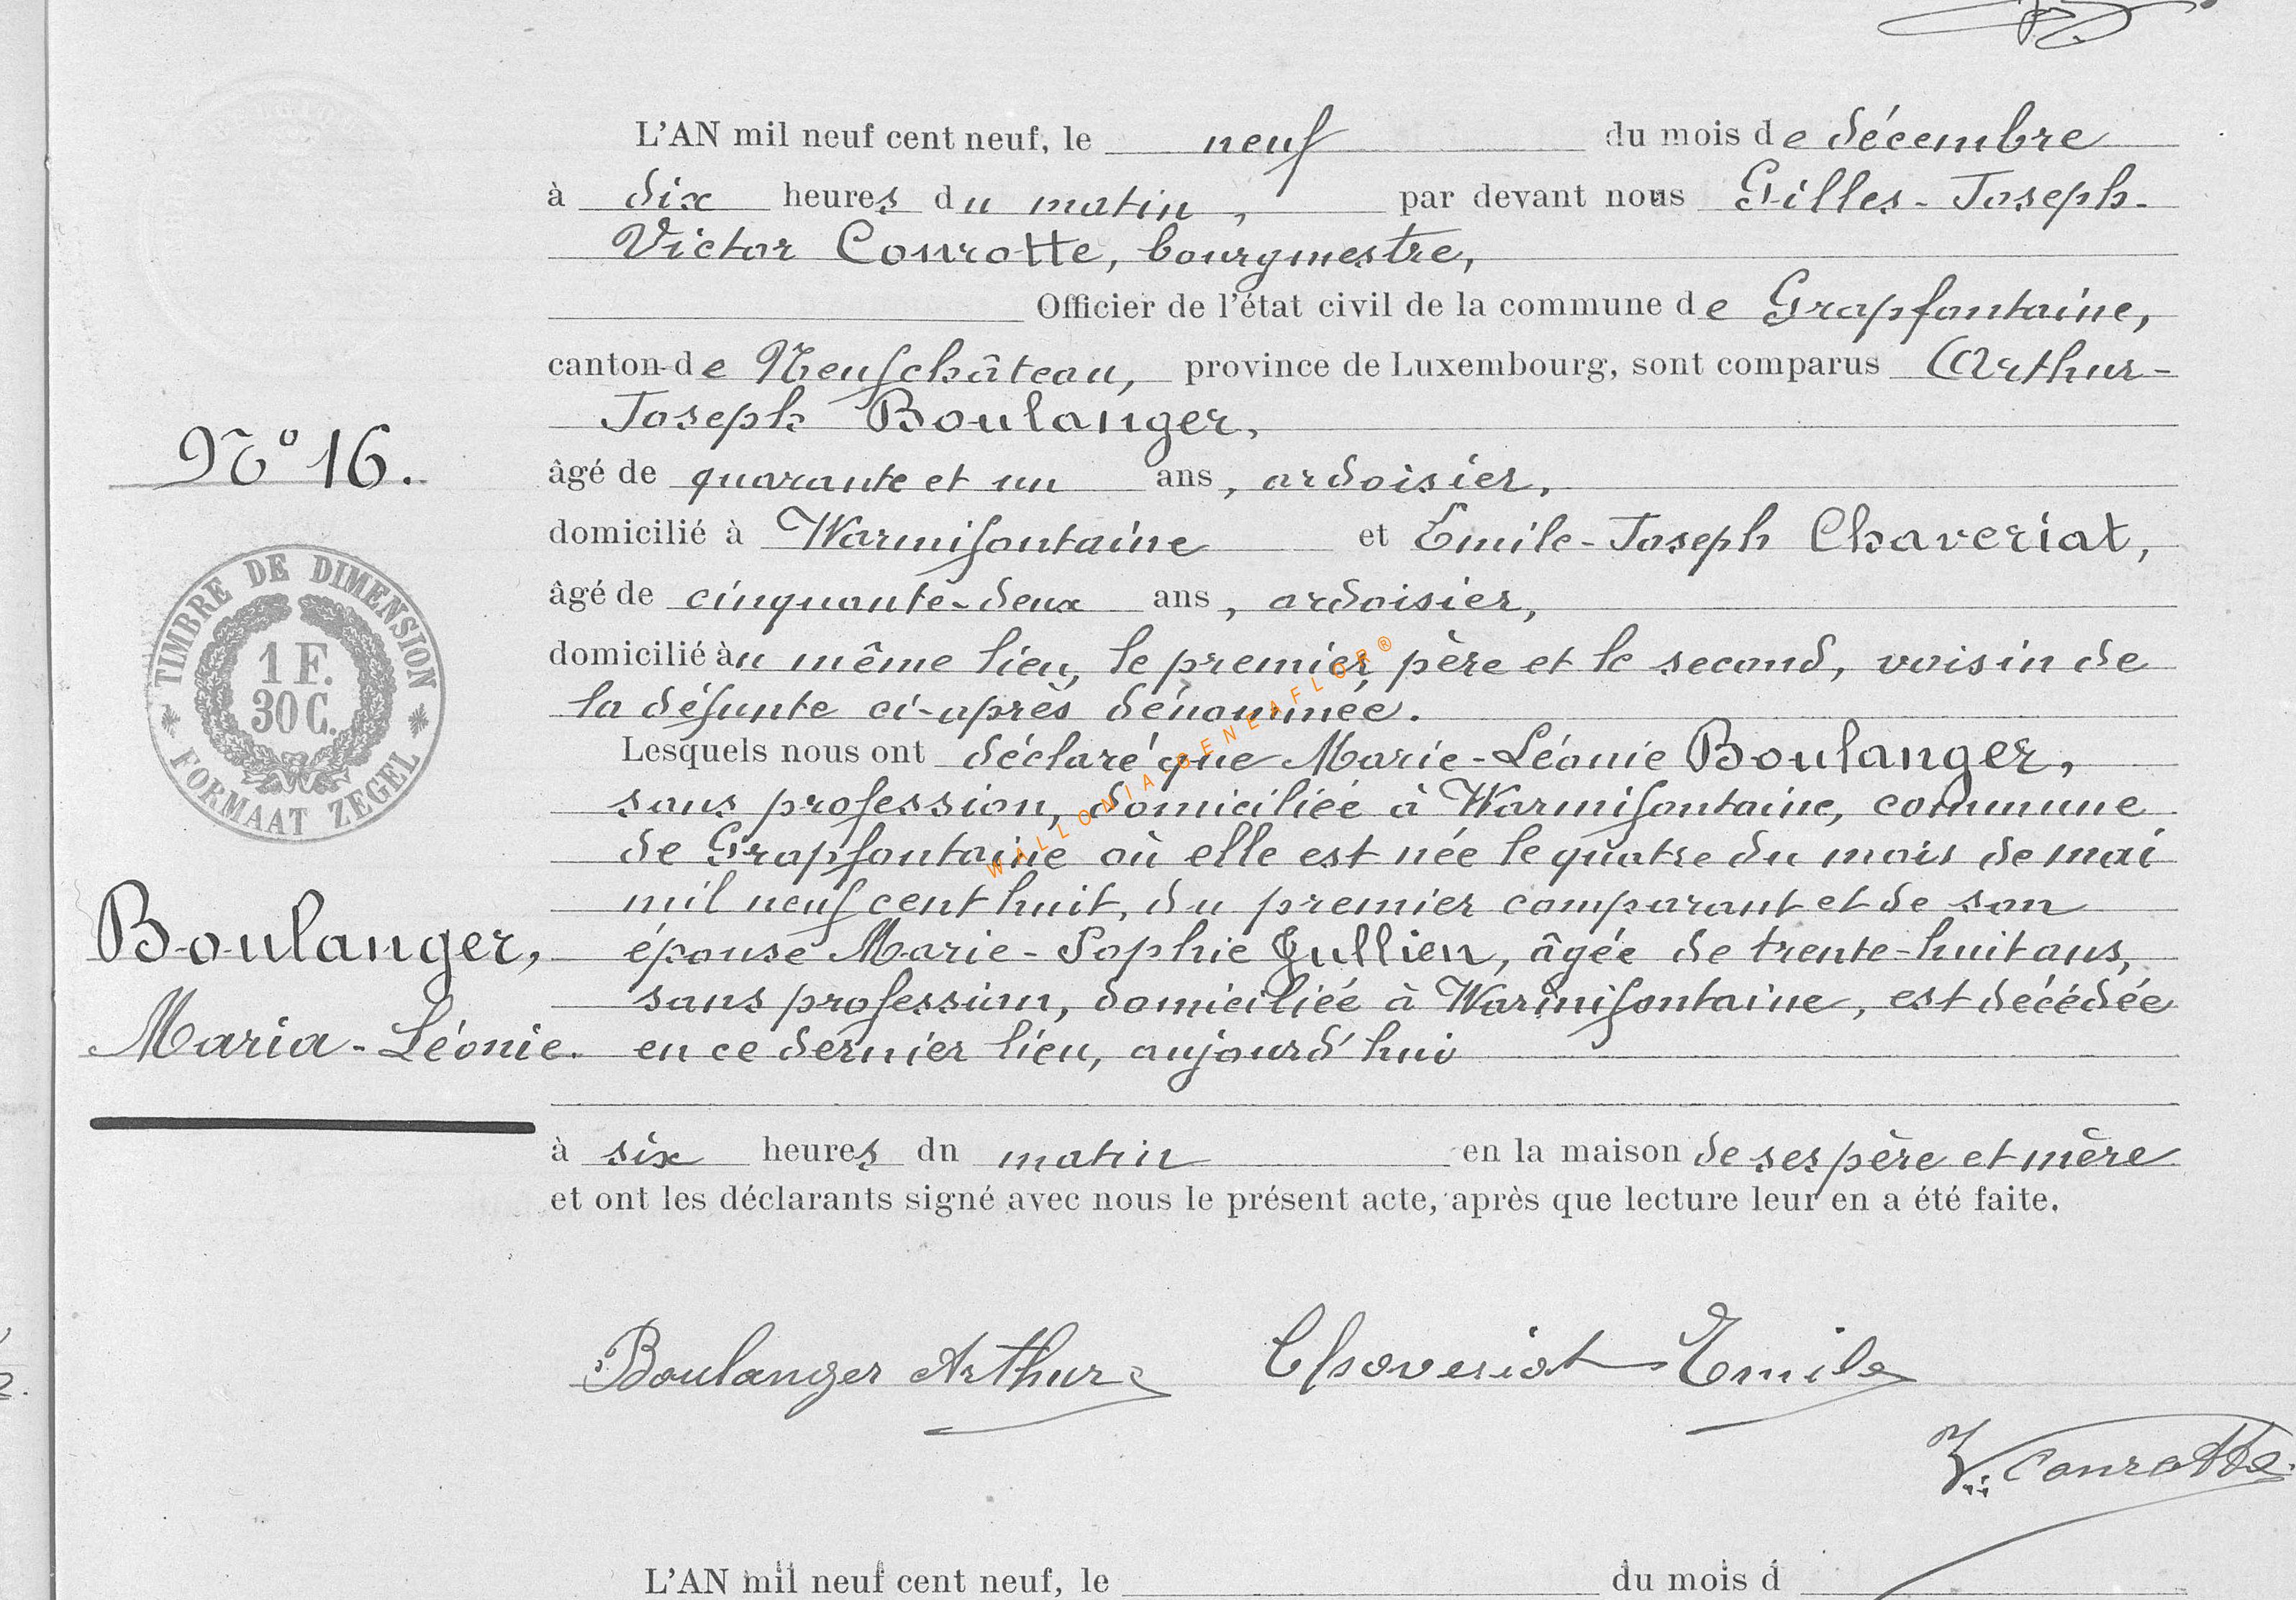 L'AN mil neuf cent neuf, le neuf du mois de décembre
à dix heures du matin, par devant nous Gilles-Joseph-
Victor Conrotte, bourgmestre,
Officier de l'état civil de la commune de Grapfontaine,
canton de Neufchâteau, province de Luxembourg, sont comparus Arthur-
Joseph Boulanger,
N° 16.
âgé de quarante et un ans, ardoisier,
domicilié à Warmifontaine et Emile-Joseph Chaveriat,
âgé de cinquante-deux ans, ardoisier,
domicilié àu même lieu, le premier, père et le second, voisin de
la défunte ci-après dénommée.
TIMBRE DE DIMENSION
1 F.
30 C.
FORMAAT ZEGEL
WALLONIALGENEAFLOR®
Lesquels nous ont déclaré que Marie-Léonie Boulanger,
sans profession, domiciliée à Warmifontaine, commune
de Grapfontaine où elle est née le quatre du mois de mai
mil neuf cent huit, du premier comparant et de son
épouse Marie-Sophie Jullien, âgée de trente-huit ans,
sans profession, domiciliée à Warmifontaine, est décédée
en ce dernier lieu, aujourd'hui
Boulanger,
Maria-Léonie.
à six heures du matin en la maison de ses père et mère
et ont les déclarants signé avec nous le présent acte, après que lecture leur en a été faite.
Boulanger Arthur Chaveriat Emile
V. Conrotte
L'AN mil neuf cent neuf, le du mois d